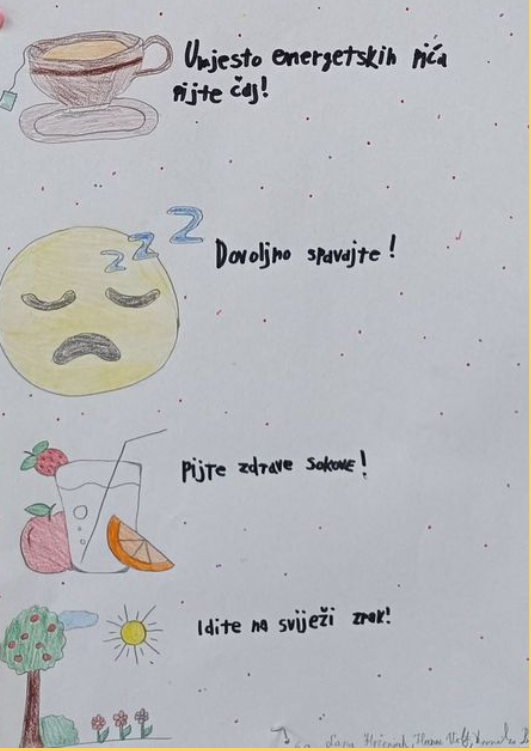 Umjesto energetskih pića
pijte čaj!
Z Z Z
Dovoljno spavajte!
Pijte zdrave sokove!
Idite na sviježi zrak!